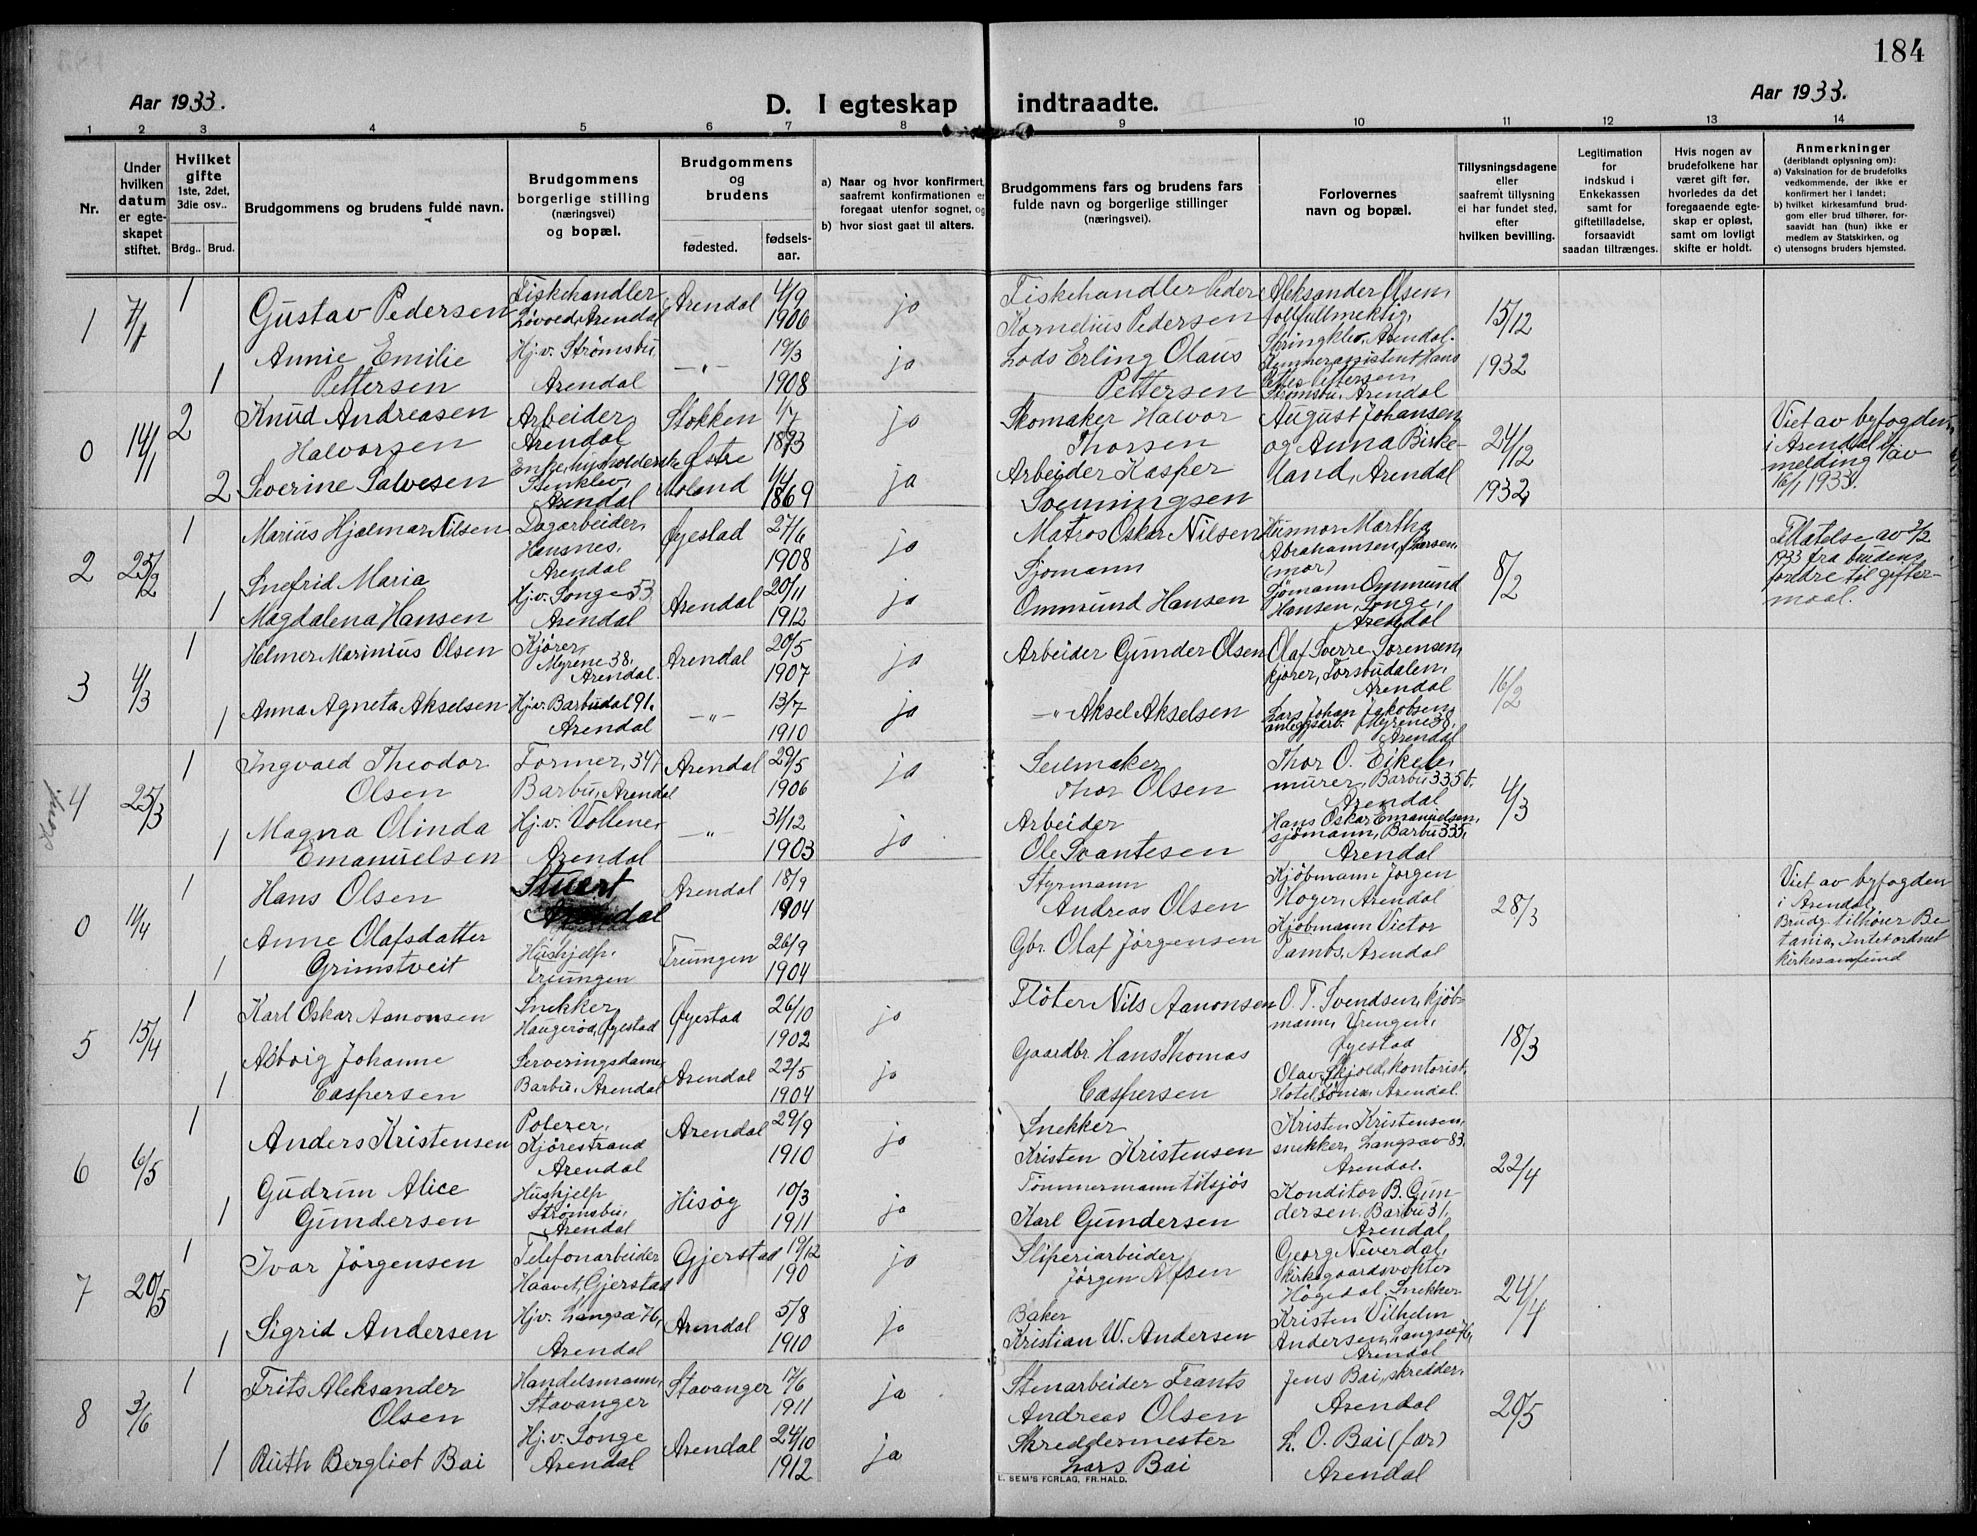 184
Aar 1933.
D. I egteskap indtraadte.
Aar 1933.
1 2 3 4 5 6 7 8 9 10 11 12 13 14
Nr.
Under hvilken datum er egteskapet stiftet.
Hvilket gifte 1ste, 2det, 3die osv..
Brdg.. Brud.
Brudgommens og brudens fulde navn.
Brudgommens borgerlige stilling (næringsvei) og bopæl.
Brudgommens og brudens
fødested.
fødsels-aar.
a) Naar og hvor konfirmert, saafremt konfirmationen er foregaat utenfor sognet, og
b) hvor sidst gaat til alters.
Brudgommens fars og brudens fars fulde navn og borgerlige stillinger (næringsvei).
Forlovernes navn og bopæl.
Tillysningsdagene eller saafremt tillysning ei har fundet sted, efter hvilken bevilling.
Legitimation for indskud i Enkekassen samt for giftetilladelse, forsaavidt saadan tiltrænges.
Hvis nogen av brudefolkene har været gift før, hvorledes da det foregaaende egteskap er opløst, samt om lovligt skifte er holdt.
Anmerkninger (deriblandt oplysning om):
a) Vaksination for de brudefolks vedkommende, der ikke er konfirmert her i landet;
b) hvilket kirkesamfund brudgom eller brud tilhører, forsaavidt han (hun) ikke er medlem av Statskirken, og
c) utensogns bruders hjemsted.
1 7/1 1 Gustav Pedersen Fiskehandler Arendal 4/9 1906 ja Fiskehandler Peder Kornelius Pedersen Aleksander Olsen, tollfullmektig, Arendal. 15/12 1932
1 Annie Emilie Pettersen Hj.v. Strømsbu Arendal —"— 19/3 1908 ja Lods Erling Olaus Pettersen Hans Pettersen, Strømsbu, Arendal
0 14/1 2 Knud Andreasen Halvorsen Arbeider, Arendal Stokken 1/7 1873 ja Skomaker Halvor Thorsen August Johansen og Anna Birkeland, Arendal 24/12 1932 Viet av byfogden i Arendal melding av 16/1 1933.
2 Severine Salvesen Stenklev, Arendal Østre Moland 1869 ja Arbeider Kasper Svenningsen
2 25/2 1 Marius Hjalmar Nilsen Dagarbeider, Hansnes, Arendal Øyestad 27/6 1908 ja Matros Oskar Nilsen Martha Abrahamsen, (mor) 8/2 Tillatelse av 3/2 1933 fra brudens foreldre til giftermaal.
1 Snefrid Maria Magdalena Hansen Hj.v. Songe 53 Arendal Arendal 20/11 1912 ja Sjømann Ommund Hansen Sjømann Ommund Hansen, Songe, Arendal
3 4/3 1 Helmer Marinius Olsen Kjører, Myrene 38, Arendal. Arendal 20/5 1907 ja Arbeider Gunder Olsen Olaf Sverre Sørensen, kjører, Torsbudalen, Arendal 16/2
1 Anna Agneta Akselsen Hj.v. Barbudal 91. Arendal —"— 13/7 1910 ja —"— Aksel Akselsen Lars Johan Jakobsen, anleggsarb. Myrene 38, Arendal
4 25/3 1 Ingvald Theodor Olsen Former, 347 Barbu, Arendal Arendal 29/5 1906 ja Seilmaker Thor Olsen Thor O. Eikeli, murer, Barbu 335 b. Arendal 4/3
1 Magna Olinda Emanuelsen Hj.v. Vollene, Arendal —"— 31/12 1903 ja Arbeider Ole Svantesen Hans Oskar Emanuelsen, sjømann, Barbu 335, Arendal
0 11/4 1 Hans Olsen Stuert Arendal Arendal 18/9 1904 Styrmann Andreas Olsen Kjøbmann Jørgen Høger, Arendal 28/3 Viet av byfogden i Arendal. Brudg. tilhører Betania, Intet ordnet kirkesamfund
1 Anne Olafsdatter Grimstveit Hushjelp, Treungen Treungen 26/9 1904 Gbr. Olaf Jørgensen Kjøbmann Victor Tambs, Arendal
5 15/4 1 Karl Oskar Aanonsen Snekker, Haugerød, Øyestad Øyestad 26/10 1902 ja Fløter Nils Aanonsen O. T. Svendsen, kjøbmann, Vrengen, Øyestad 18/3
1 Asborg Johanne Caspersen Serveringsdame, Barbu, Arendal Arendal 22/5 1904 ja Gaardbr. Hans Thomas Caspersen Olav Skjold, kontorist, Hotel Fønix, Arendal.
6 6/5 1 Anders Kristensen Polerer, Kjørestrand Arendal Arendal 29/9 1910 ja Snekker Kristen Kristensen Kristen Kristensen, snekker, Langsæv 83. Arendal. 22/4
1 Gudrun Alice Gundersen Hushjelp Strømsbu, Arendal Hisøy 10/3 1911 ja Tømmermann tilsjøs Karl Gundersen Konditor B. Gundersen, Barbu 31, Arendal
7 20/5 1 Ivar Jørgensen Telefonarbeider Haavet, Gjerstad Gjerstad 19/12 190 ja Sliperiarbeider Jørgen Alfsen Georg Neverdal, kirkegaardsvokter Høgedal. 24/4
1 Sigrid Andersen Hj.v. Langsæ 76, Arendal Arendal 5/8 1910 ja Baker Kristian W. Andersen Snekker Kristen Vilhelm Andersen, Langsæ 76, Arendal
8 3/6 1 Frits Aleksander Olsen Handelsmann, Stavanger Stavanger 17/6 1911 ja Stenarbeider Frants Andreas Olsen Jens Bai, skredder, Arendal 20/5
1 Ruth Bergliot Bai Hj.v. Songe Arendal Arendal 24/10 1912 ja Skreddermester Lars Bai L. O. Bai (far) Arendal
E. SEM'S FORLAG, FR.HALD.